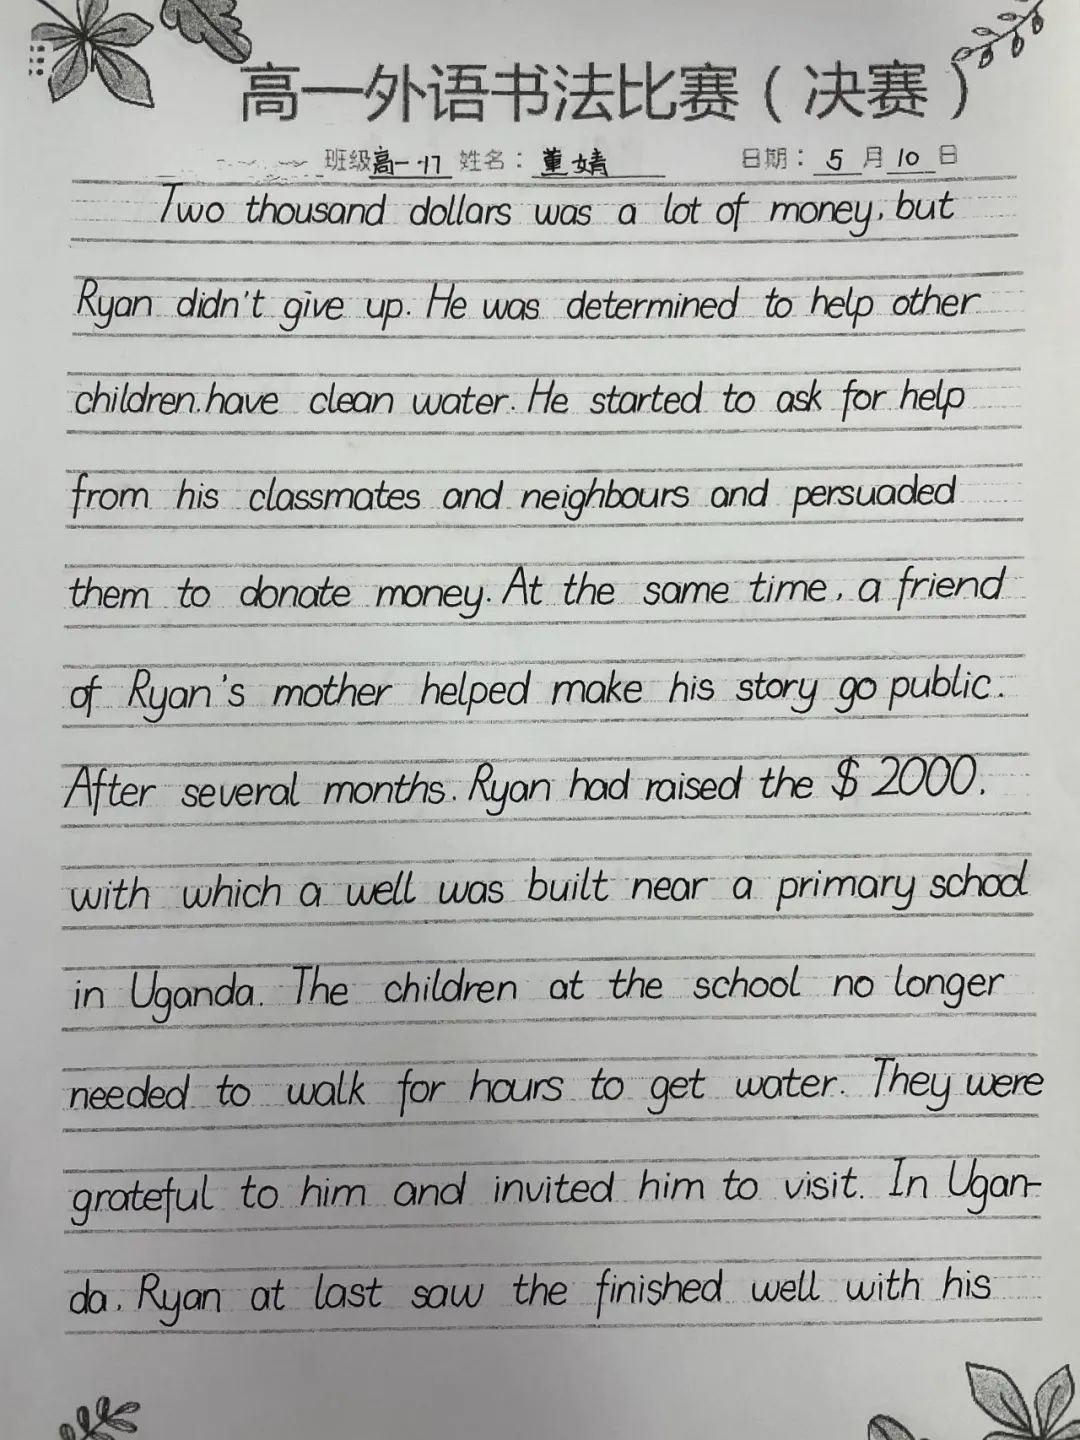 高一外语书法比赛（决赛）
班级高一·17 姓名：董婧 日期：5月10日
Two thousand dollars was a lot of money, but
Ryan didn't give up. He was determined to help other
children have clean water. He started to ask for help
from his classmates and neighbours and persuaded
them to donate money. At the same time, a friend
of Ryan's mother helped make his story go public.
After several months. Ryan had raised the $ 2000.
with which a well was built near a primary school
in Uganda. The children at the school no longer
needed to walk for hours to get water. They were
grateful to him and invited him to visit. In Ugan-
da, Ryan at last saw the finished well with his